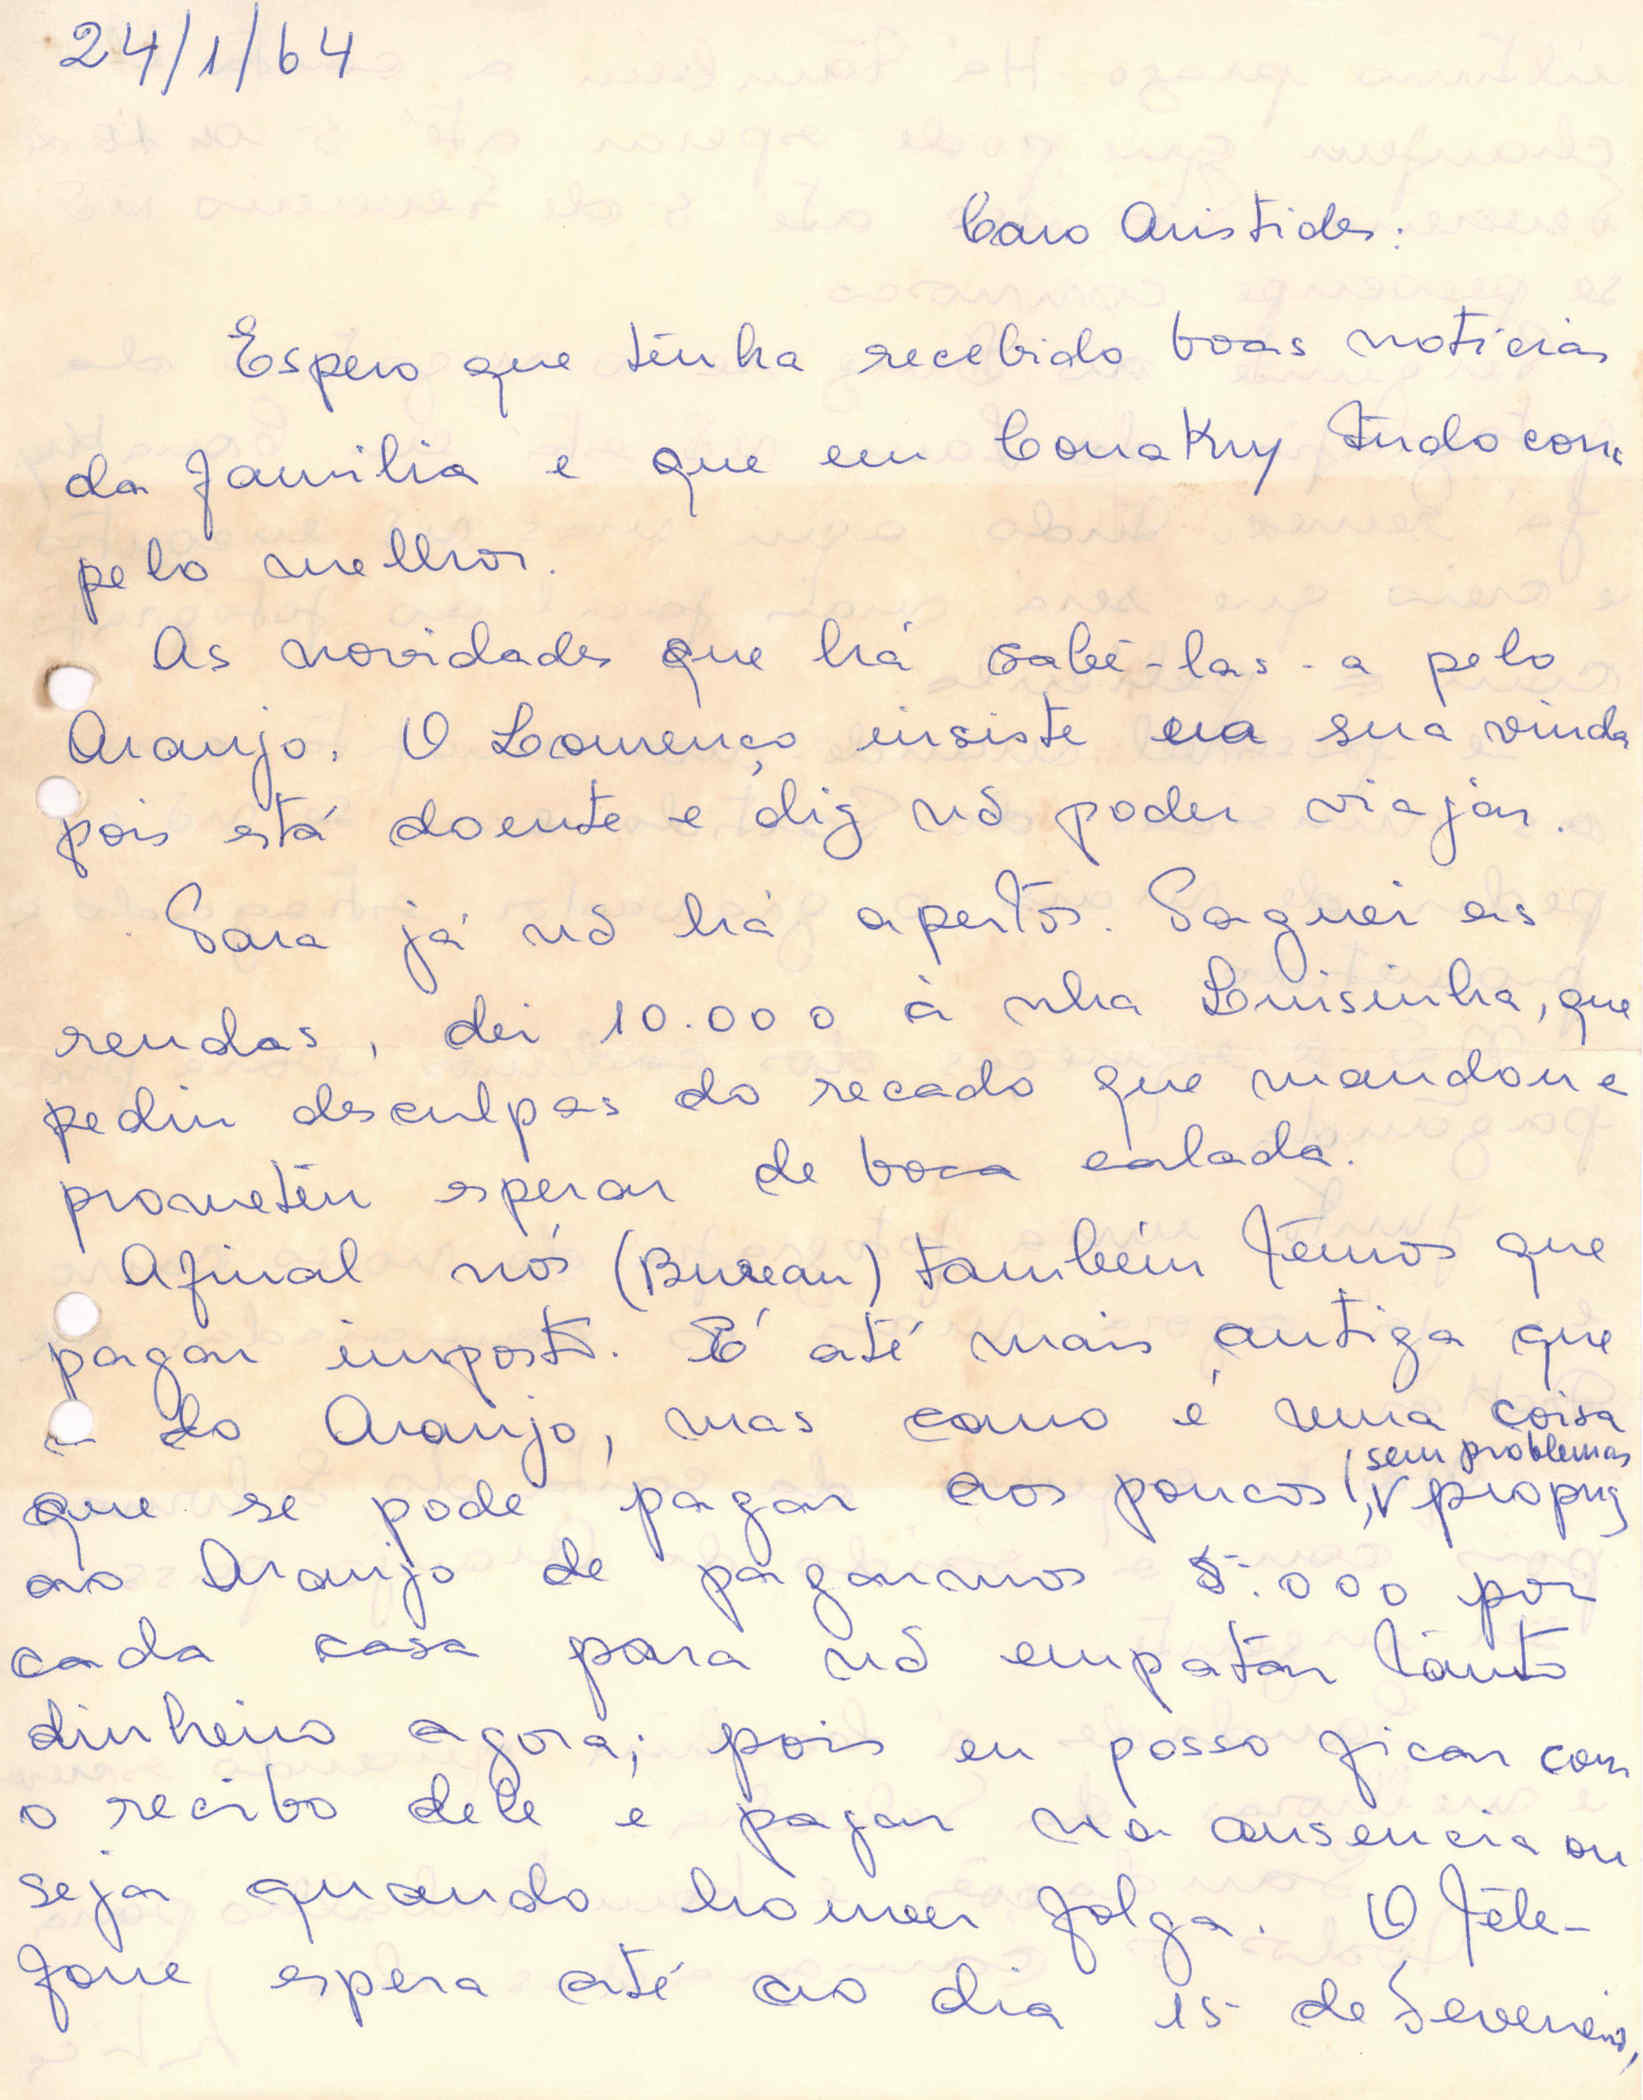 24/1/64
Caro Aristides:
Espero que tenha recebido boas noticias
da familia e que em Conakry tudo corra
pelo melhor.
As novidades que há sabê-las-a pelo
Araujo. O Lourenço insiste na sua vinda
pois está doente e diz nõ poder viajar.
Para já nõ há apertos. Paguei as
rendas, dei 10.000 à nha Luisinha, que
pediu desculpas do recado que mandou e
prometeu esperar de boca calada.
Afinal nós (Bureau) também temos que
pagar imposto. É até mais antiga que
a do Araujo, mas como é uma coisa
que se pode pagar aos poucos, sem problemas propuz
ao Araujo de pagarmos 5.000 por
cada casa para nõ empatar tanto
dinheiro agora; pois eu posso ficar com
o recibo dele e pagar na ausencia ou
seja quando houver folga. O tele-
fone espera até ao dia 15 de Fevereiro,